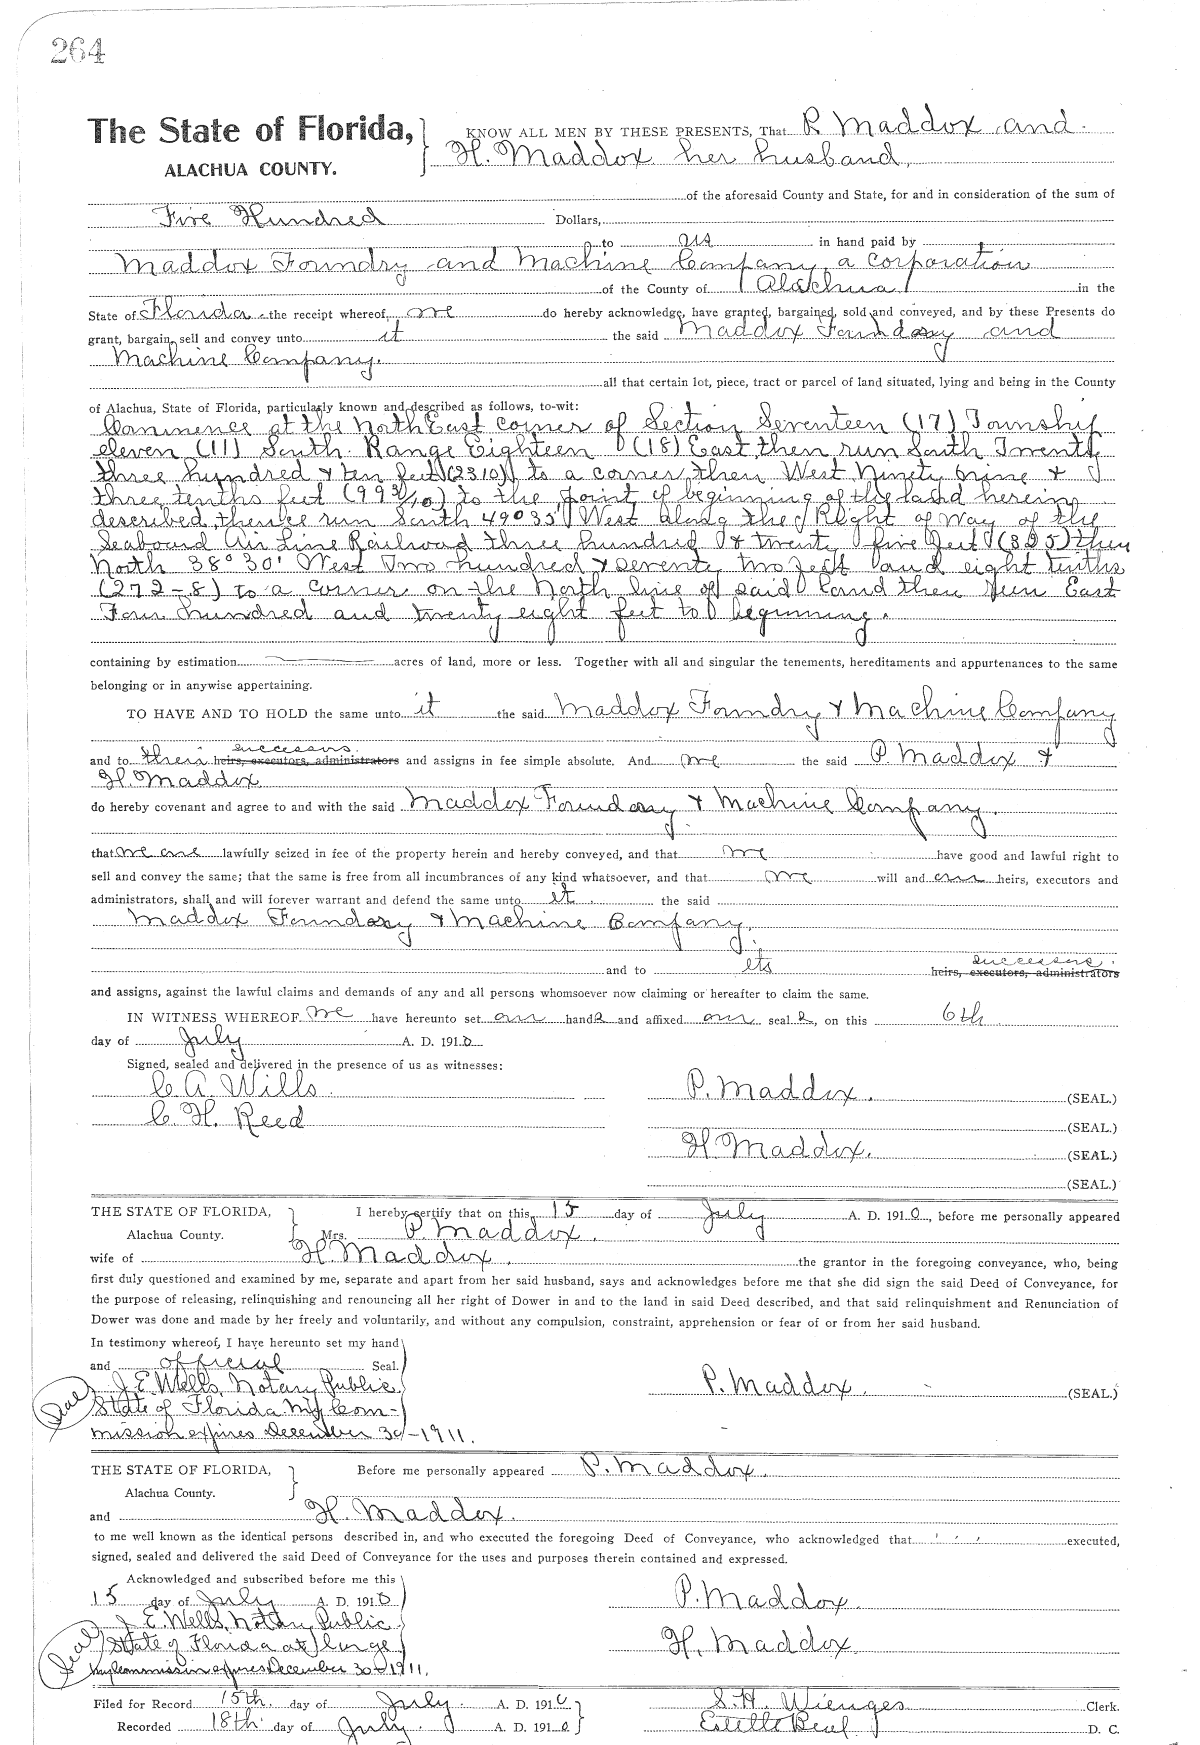 264
The State of Florida,
ALACHUA COUNTY.
KNOW ALL MEN BY THESE PRESENTS, That P. Maddox and
H. Maddox her husband,
of the aforesaid County and State, for and in consideration of the sum of
Five Hundred Dollars,
to us in hand paid by
Maddox Foundry and Machine Company, a corporation
of the County of Alachua in the
State of Florida the receipt whereof we do hereby acknowledge, have granted, bargained, sold and conveyed, and by these Presents do
grant, bargain, sell and convey unto it the said Maddox Foundary and
Machine Company.
all that certain lot, piece, tract or parcel of land situated, lying and being in the County
of Alachua, State of Florida, particularly known and described as follows, to-wit:
Commence at the North East corner of Section Seventeen (17) Township
eleven (11) South Range Eighteen (18) East then run South Twenty
three hundred & ten feet (2310) to a corner, then West Ninety nine &
three tenths feet (99 3/10) to the point of beginning of the land herein
described, thence run South 49°35' West along the Right of Way of the
Seaboard Air Line Railroad three hundred & twenty five feet (325) then
North 38° 30' West Two hundred & seventy two feet and eight tenths
(272-8) to a corner on the North line of said land then Run East
Four hundred and twenty eight feet to beginning.
containing by estimation acres of land, more or less. Together with all and singular the tenements, hereditaments and appurtenances to the same
belonging or in anywise appertaining.
TO HAVE AND TO HOLD the same unto it the said Maddox Foundry & Machine Company
successors
and to their heirs, executors, administrators and assigns in fee simple absolute. And we the said P. Maddox &
H. Maddox
do hereby covenant and agree to and with the said Maddox Foundary & Machine Company.
that we are lawfully seized in fee of the property herein and hereby conveyed, and that we have good and lawful right to
sell and convey the same; that the same is free from all incumbrances of any kind whatsoever, and that we will and our heirs, executors and
administrators, shall and will forever warrant and defend the same unto it the said
Maddox Foundary & Machine Company.
successors
and to its heirs, executors, administrators
and assigns, against the lawful claims and demands of any and all persons whomsoever now claiming or hereafter to claim the same.
IN WITNESS WHEREOF we have hereunto set our hands and affixed our seals, on this 6th
day of July A. D. 1910
Signed, sealed and delivered in the presence of us as witnesses:
C. A. Wills P. Maddox. (SEAL.)
C. H. Reed (SEAL.)
H. Maddox. (SEAL.)
(SEAL.)
THE STATE OF FLORIDA, I hereby certify that on this 15 day of July A. D. 1910, before me personally appeared
Alachua County. Mrs. P. Maddox.
wife of H. Maddox. the grantor in the foregoing conveyance, who, being
first duly questioned and examined by me, separate and apart from her said husband, says and acknowledges before me that she did sign the said Deed of Conveyance, for
the purpose of releasing, relinquishing and renouncing all her right of Dower in and to the land in said Deed described, and that said relinquishment and Renunciation of
Dower was done and made by her freely and voluntarily, and without any compulsion, constraint, apprehension or fear of or from her said husband.
In testimony whereof, I have hereunto set my hand
and official Seal.
J. E. Wells, Notary Public P. Maddox. (SEAL.)
Seal State of Florida My Com-
mission expires December 30-1911.
THE STATE OF FLORIDA, Before me personally appeared P. Maddox.
Alachua County.
and H. Maddox.
to me well known as the identical persons described in, and who executed the foregoing Deed of Conveyance, who acknowledged that executed,
signed, sealed and delivered the said Deed of Conveyance for the uses and purposes therein contained and expressed.
Acknowledged and subscribed before me this
15 day of July A. D. 1910 P. Maddox.
J. E. Wells, Notary Public
Seal State of Florida at large H. Maddox.
My commission expires December 30-1911.
Filed for Record 15th. day of July. A. D. 1910 S. H. Wienges Clerk.
Recorded 18th. day of July. A. D. 1910 Estelle Beal D. C.